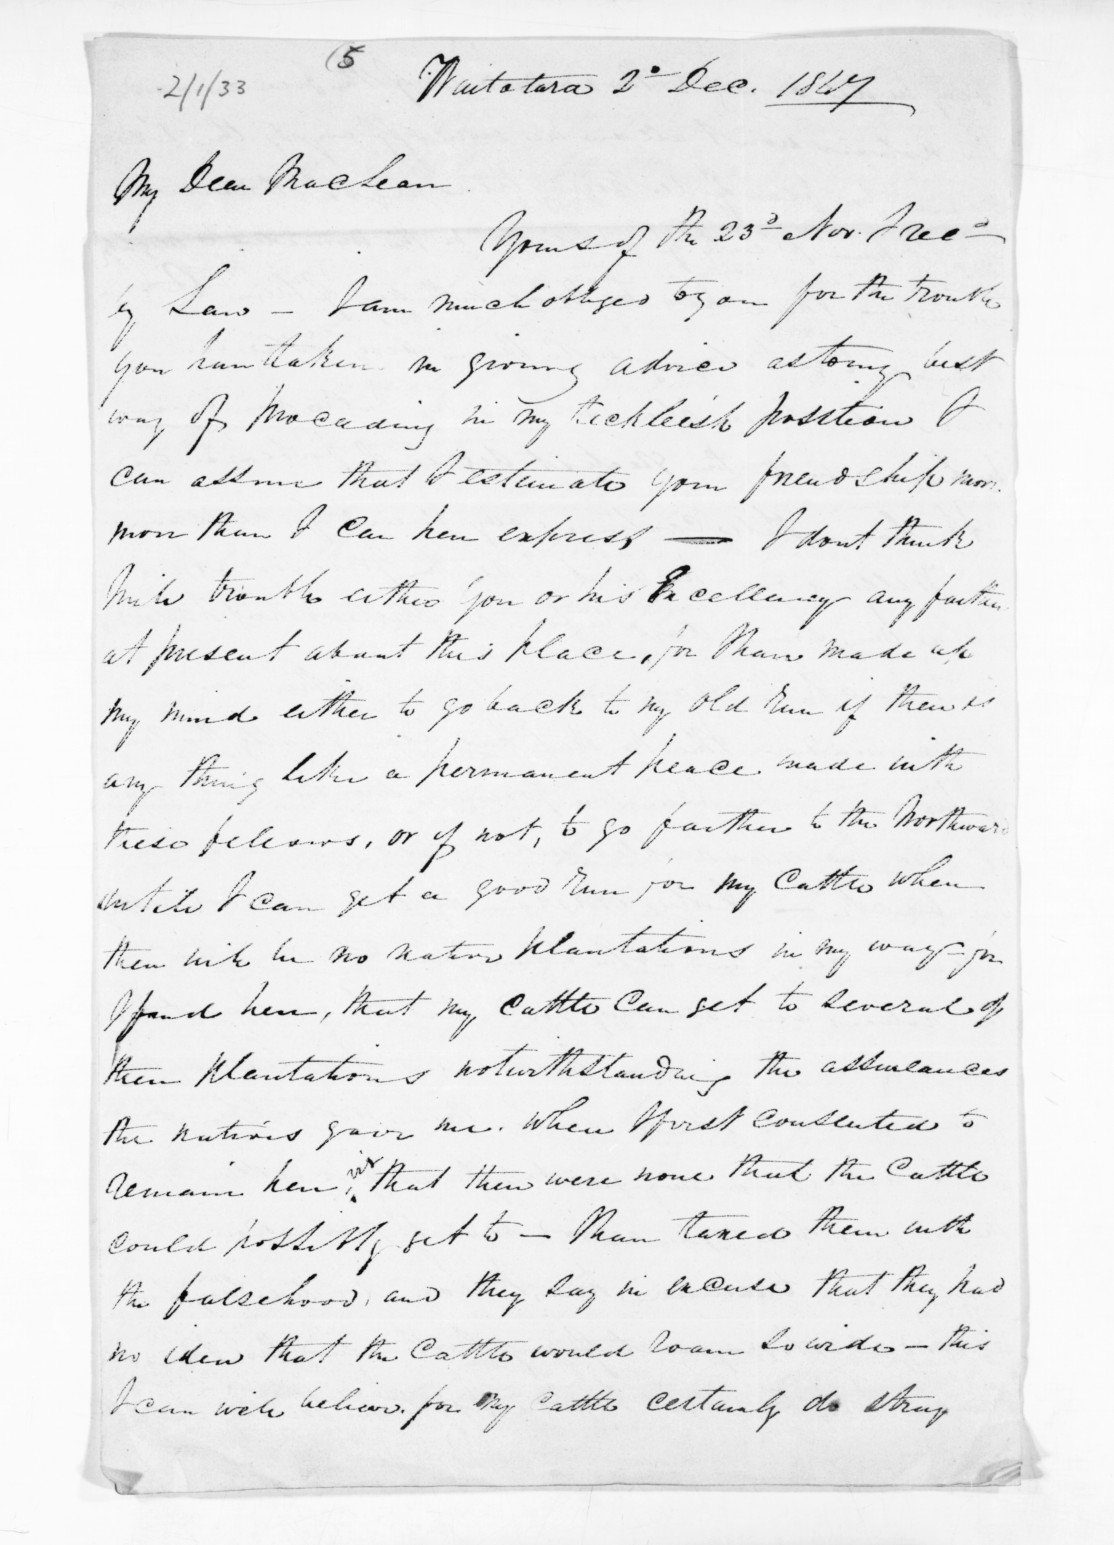 (5
2/1/33
Waitotara 2d Dec. 1847
My Dear MacLean
Yours of the 23d Nov. I recd
by Law — I am much obliged to you for the trouble
you have taken in giving advice as to my best
way of proceading in my tickleish position I
can assure that I estimate your friendship more
more than I can here express — I dont think
I will trouble either you or his Excellency any farther
at present about this place, for I have made up
my mind either to go back to my old run if there is
any thing like a permanent peace made with
these fellows, or if not, to go farther to the Northward
until I can get a good run for my Cattle when
there will be no native plantations in my way for
I find here, that my cattle can get to several of
their plantations notwithstanding the assurances
the natives gave me. When I first consented to
remain here, viz that there were none that the Cattle
could possibly get to — I have taxed them with
the falsehood, and they say in excuse that they had
no idea that the Cattle would roam so wide — this
I can well believe, for my Cattle certainly do stray